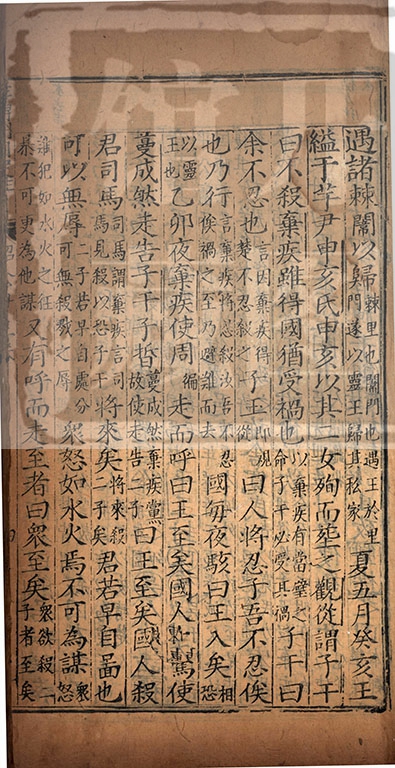 遇諸棘闈以歸棘里也闈門也遇王於里門遂以靈王歸其私家夏五月癸亥王
縊于芋尹申亥氏申亥以其二女殉而葬之觀從謂子干
曰不殺棄疾雖得國猶受禍也以棄疾有當璧之命子干必受其禍子干曰
余不忍也言因棄疾得楚不忍殺之子玉即觀從曰人將忍子吾不忍俟
也乃行言棄疾將忍殺汝吾不忍俟禍之至乃避難而去國每夜駭曰王入矣相恐
以靈王也乙卯夜棄疾使周徧走而呼曰王至矣國人驚使
蔓成然走告子干子晳蔓成然棄疾黨故使走告二子曰王至矣國人殺
君司馬司馬謂棄疾言司馬見殺以恐子干將來矣將來殺二子矣君若早自啚也
可以無辱二子若早自處分可無殺戮之辱衆怒如水火焉不可為謀衆怒
難犯如水火之狂暴不可更為他謀又有呼而走至者曰衆至矣衆欲殺二子者至矣